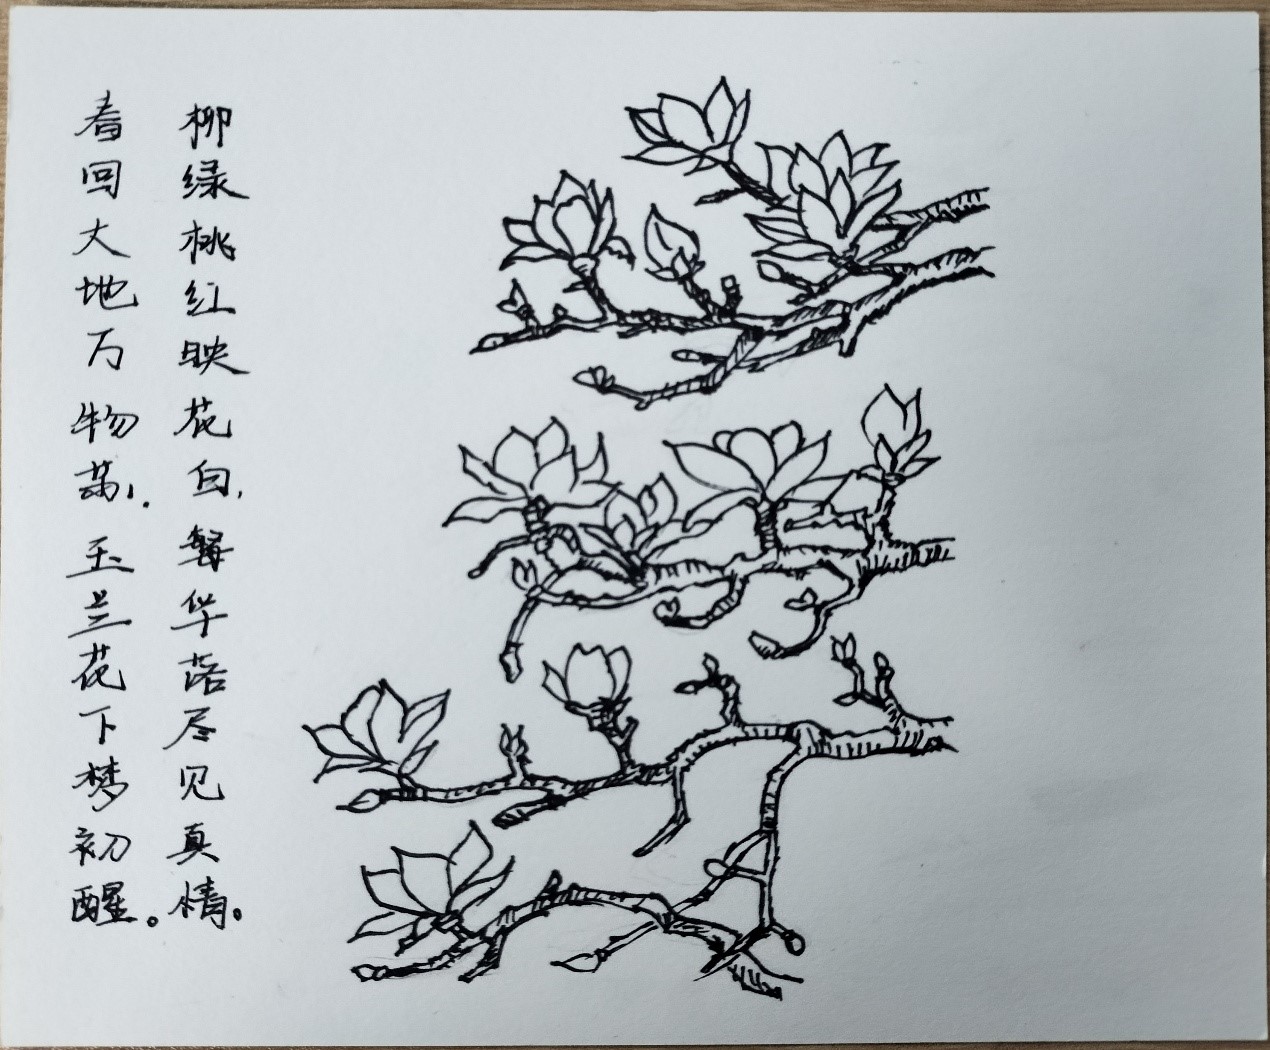 春回大地万物苏，玉兰花下梦初醒。
柳绿桃红映花白，繁华落尽见真情。